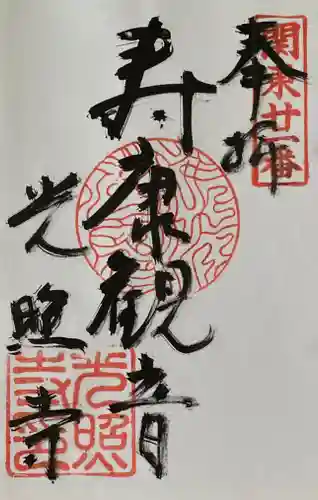 奉拝
関東廿一番
寿康観音
光照寺
光照
寺印